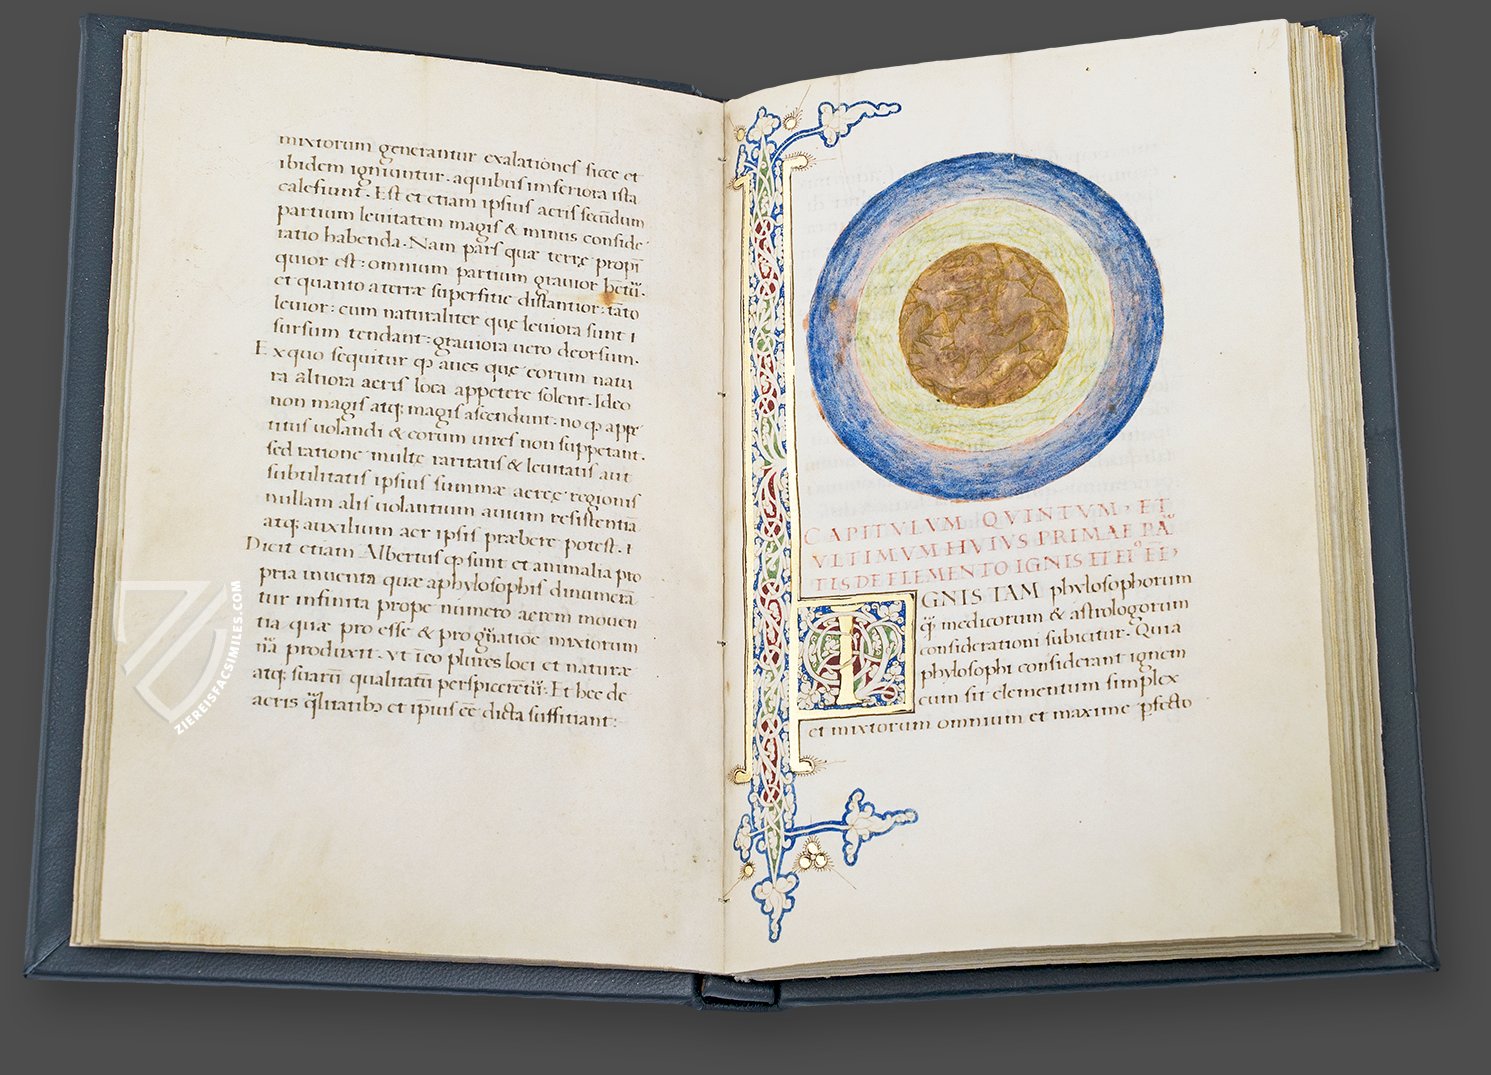 mixtorum generantur exalationes sicce et
ibidem igniuntur. aquibus inferiora ista
calefiunt. Est et etiam ipsius aeris secũdum
partium leuitatem magis & minus conside
ratio habenda. Nam pars quæ terrę propĩ
quior est: omnium partium grauior hẽtũr.
et quanto a terræ superfitie distantior: tãto
leuior: cum naturaliter quę leuiora sunt i
sursum tendant: grauiora uero deorsum.
Exquo sequitur ꝙ aues quę eorum natu
ra altiora aeris loca appetere solent. Ideo
non magis atq; magis ascendunt. no ꝙ appe
titus uolandi & eorum uires non suppetant.
sed ratione multę raritatis & leuitatis aut
subtilitatis ipsius summæ aereę regionis
nullam alis uolantium auium resistentiã
atq; auxilium aer ipsis præbere potest. i
Dicit etiam Albertus ꝙ sunt et animalia pro
pria inuenta quæ aphylosophis dinumerã
tur infinita prope numero aerem mouen
tia quæ pro esse & pro gñatioẽ mixtorum
nã produxit. vt ĩeo plures loci et naturæ
atq; suarũ qualitatũ perspicerẽtũr. Et hec de
aeris q̃litatibꝫ et ipius eẽ dicta suffitiant:
19
CAPITVLVM QVINTVM, ET
VLTIMVM HVIVS PRIMAE PÃ
TIS DE ELEMENTO IGNIS ET EIꝰ
IGNIS TAM phylosophorum
q̃ medicorum & astrologorum
considerationi subicitur. Quia
phylosophi considerant ignem
cum sit elementum simplex
et mixtorum omnium et maxime ꝑfecto
ZIEREISFACSIMILES.COM